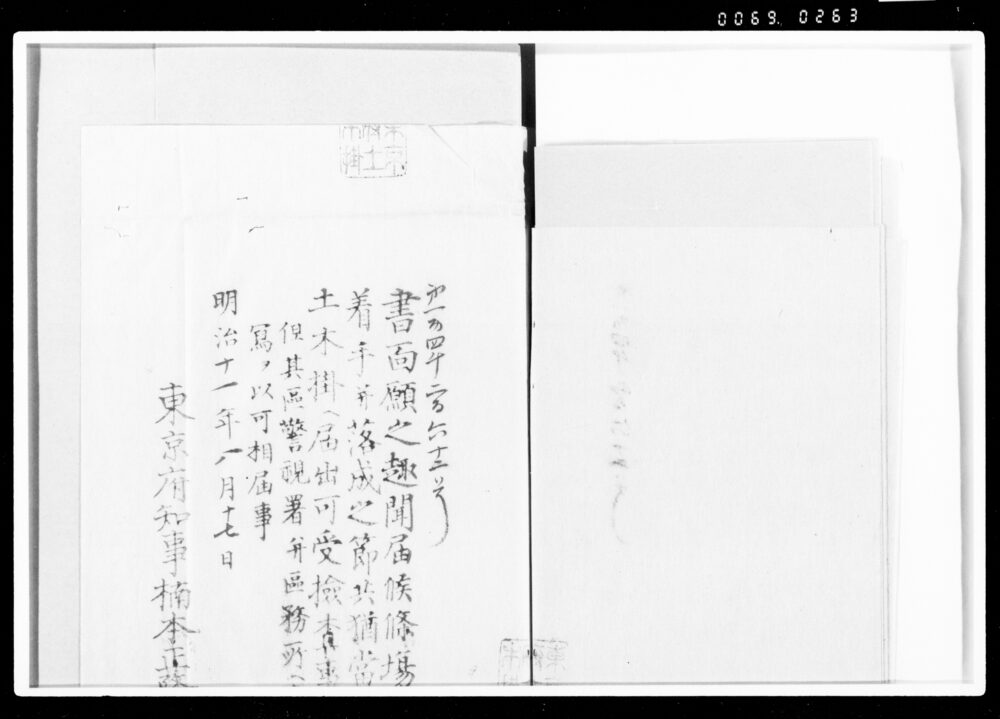 0069. 0263
第一万四千二百六十二号
書面願之趣聞届候條塲
着手并落成之節共猶當
土木掛ヘ届出可受撿査事
但其區警視署并區務所ヘ
寫ヲ以可相届事
明治十一年八月十七日
東京府知事楠本正隆